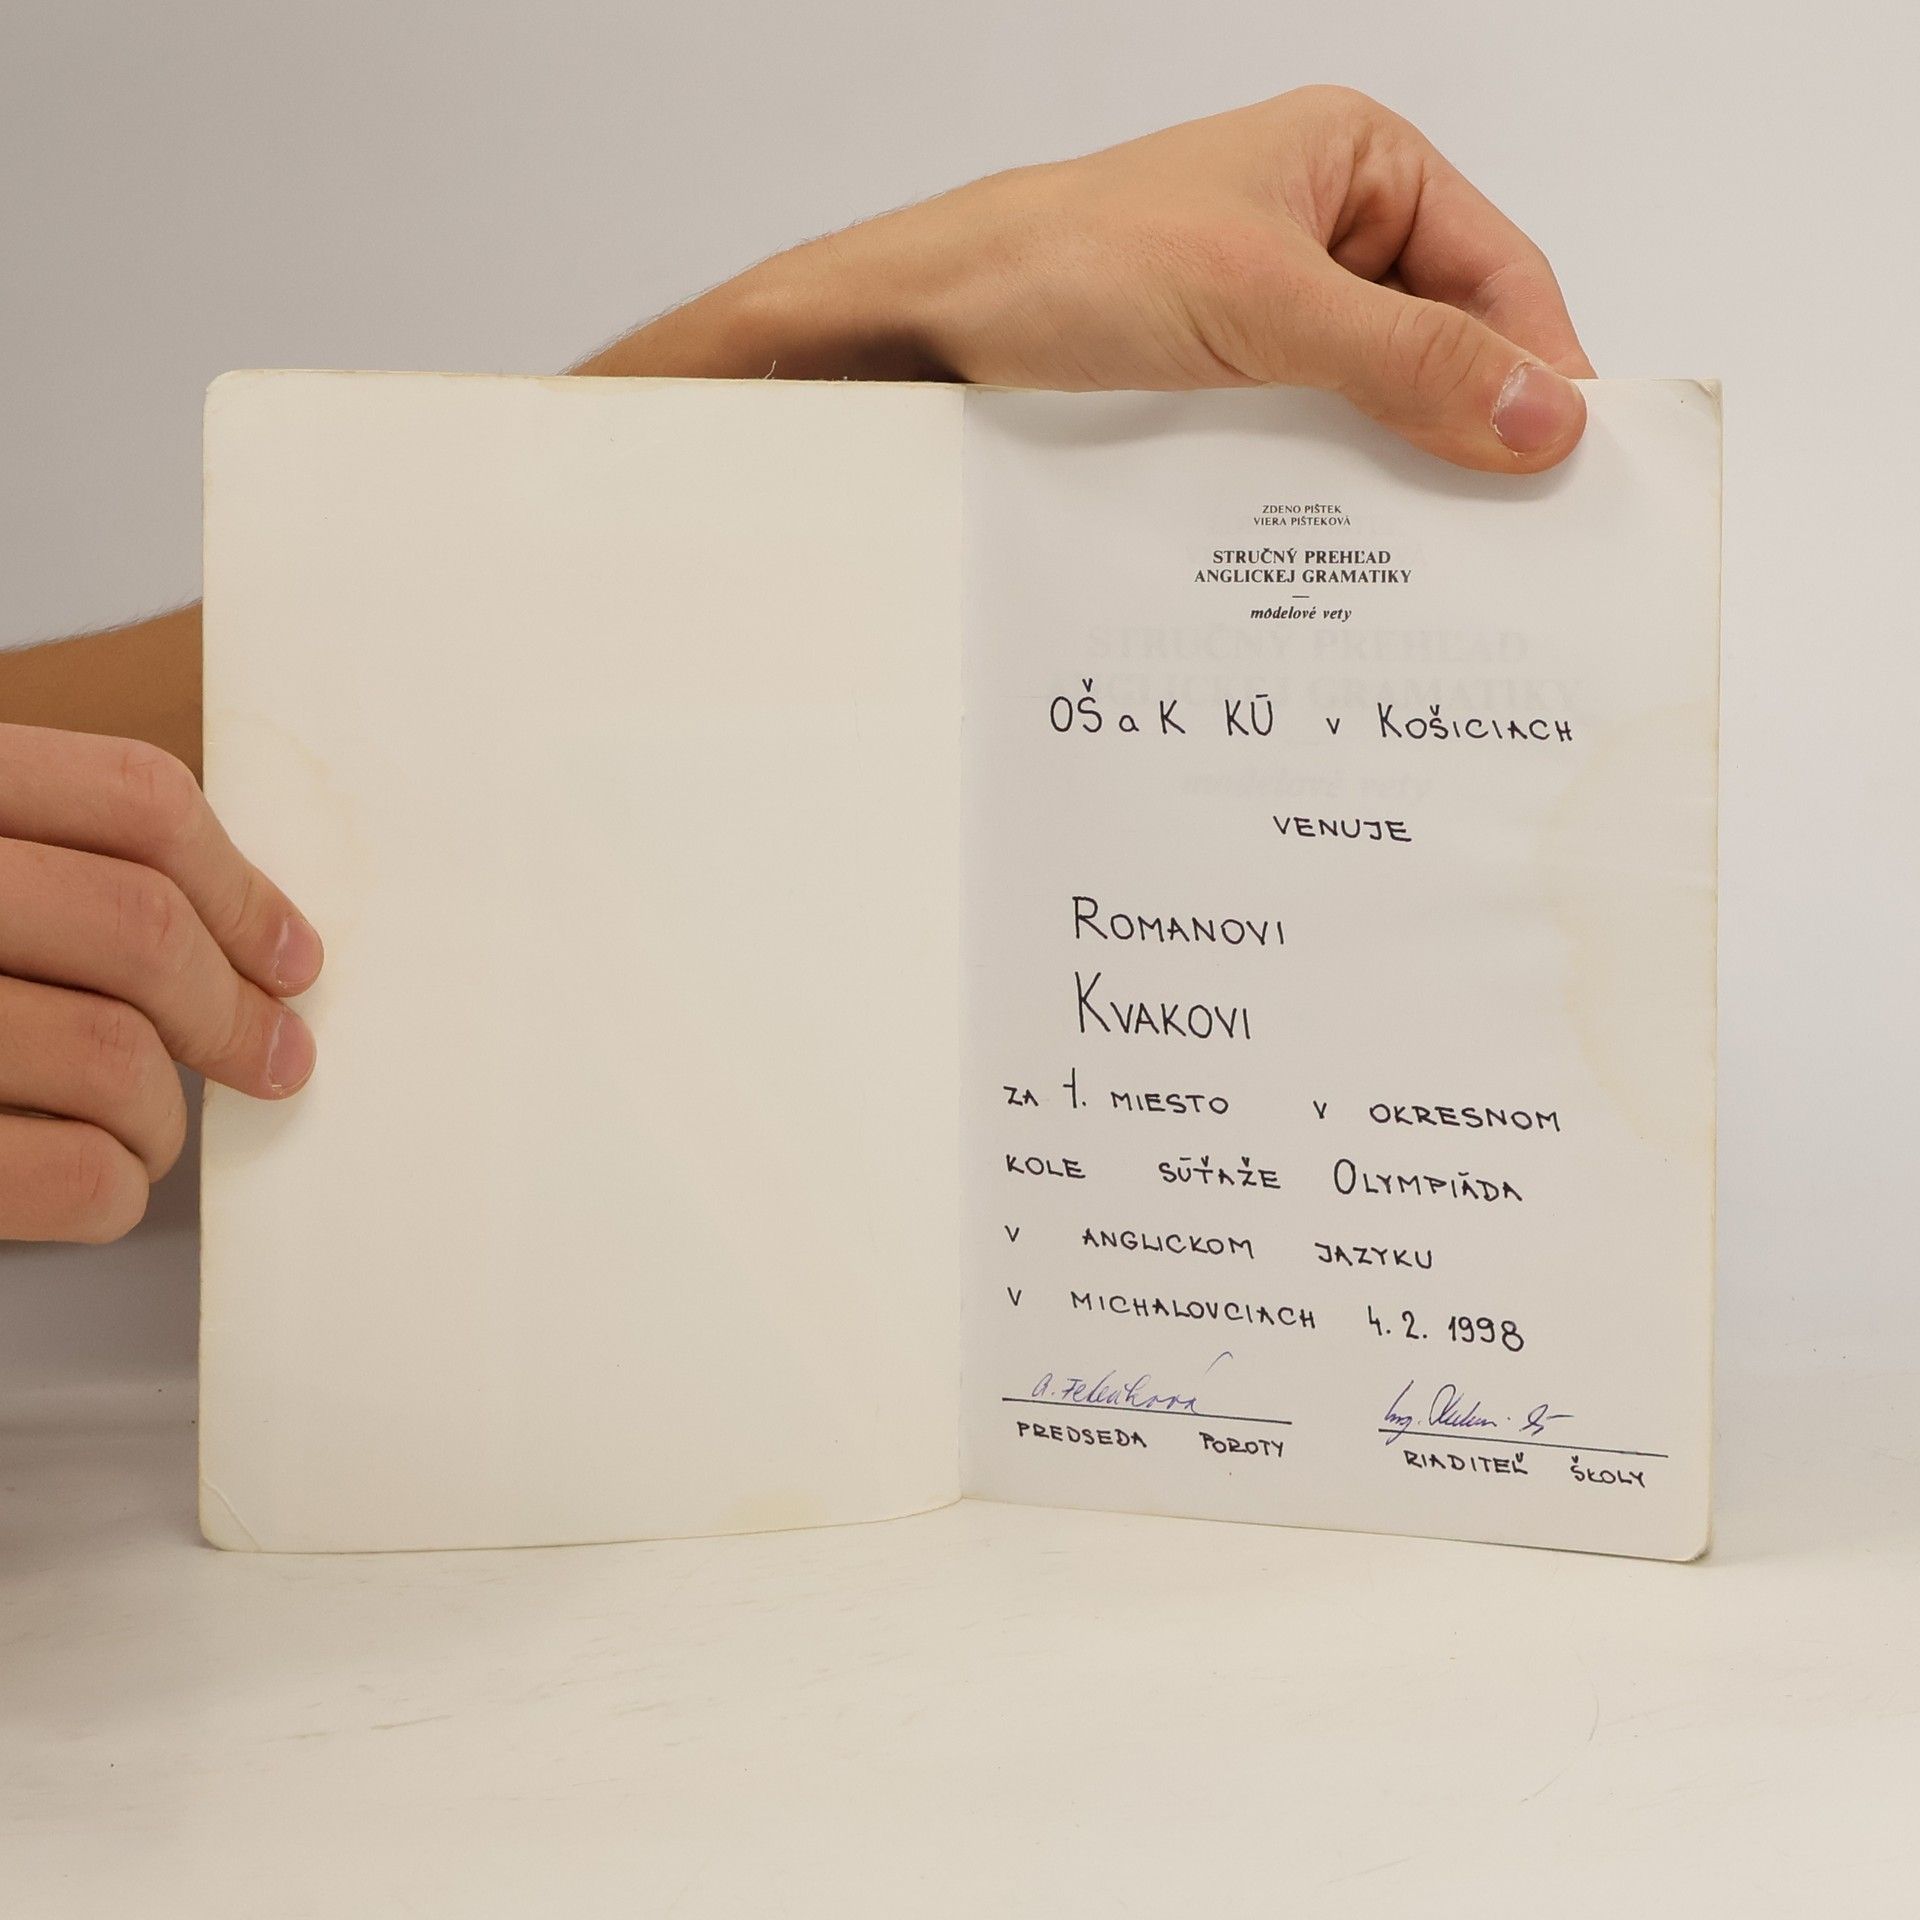 ZDENO PIŠTEK
VIERA PIŠTEKOVÁ
STRUČNÝ PREHĽAD
ANGLICKEJ GRAMATIKY
modelové vety
OŠaK KÚ v KOŠICIACH
VENUJE
ROMANOVI
KVAKOVI
ZA 1. MIESTO V OKRESNOM
KOLE SÚŤAŽE OLYMPIÁDA
V ANGLICKOM JAZYKU
V MICHALOVCIACH 4. 2. 1998
PREDSEDA POROTY
RIADITEĽ ŠKOLY